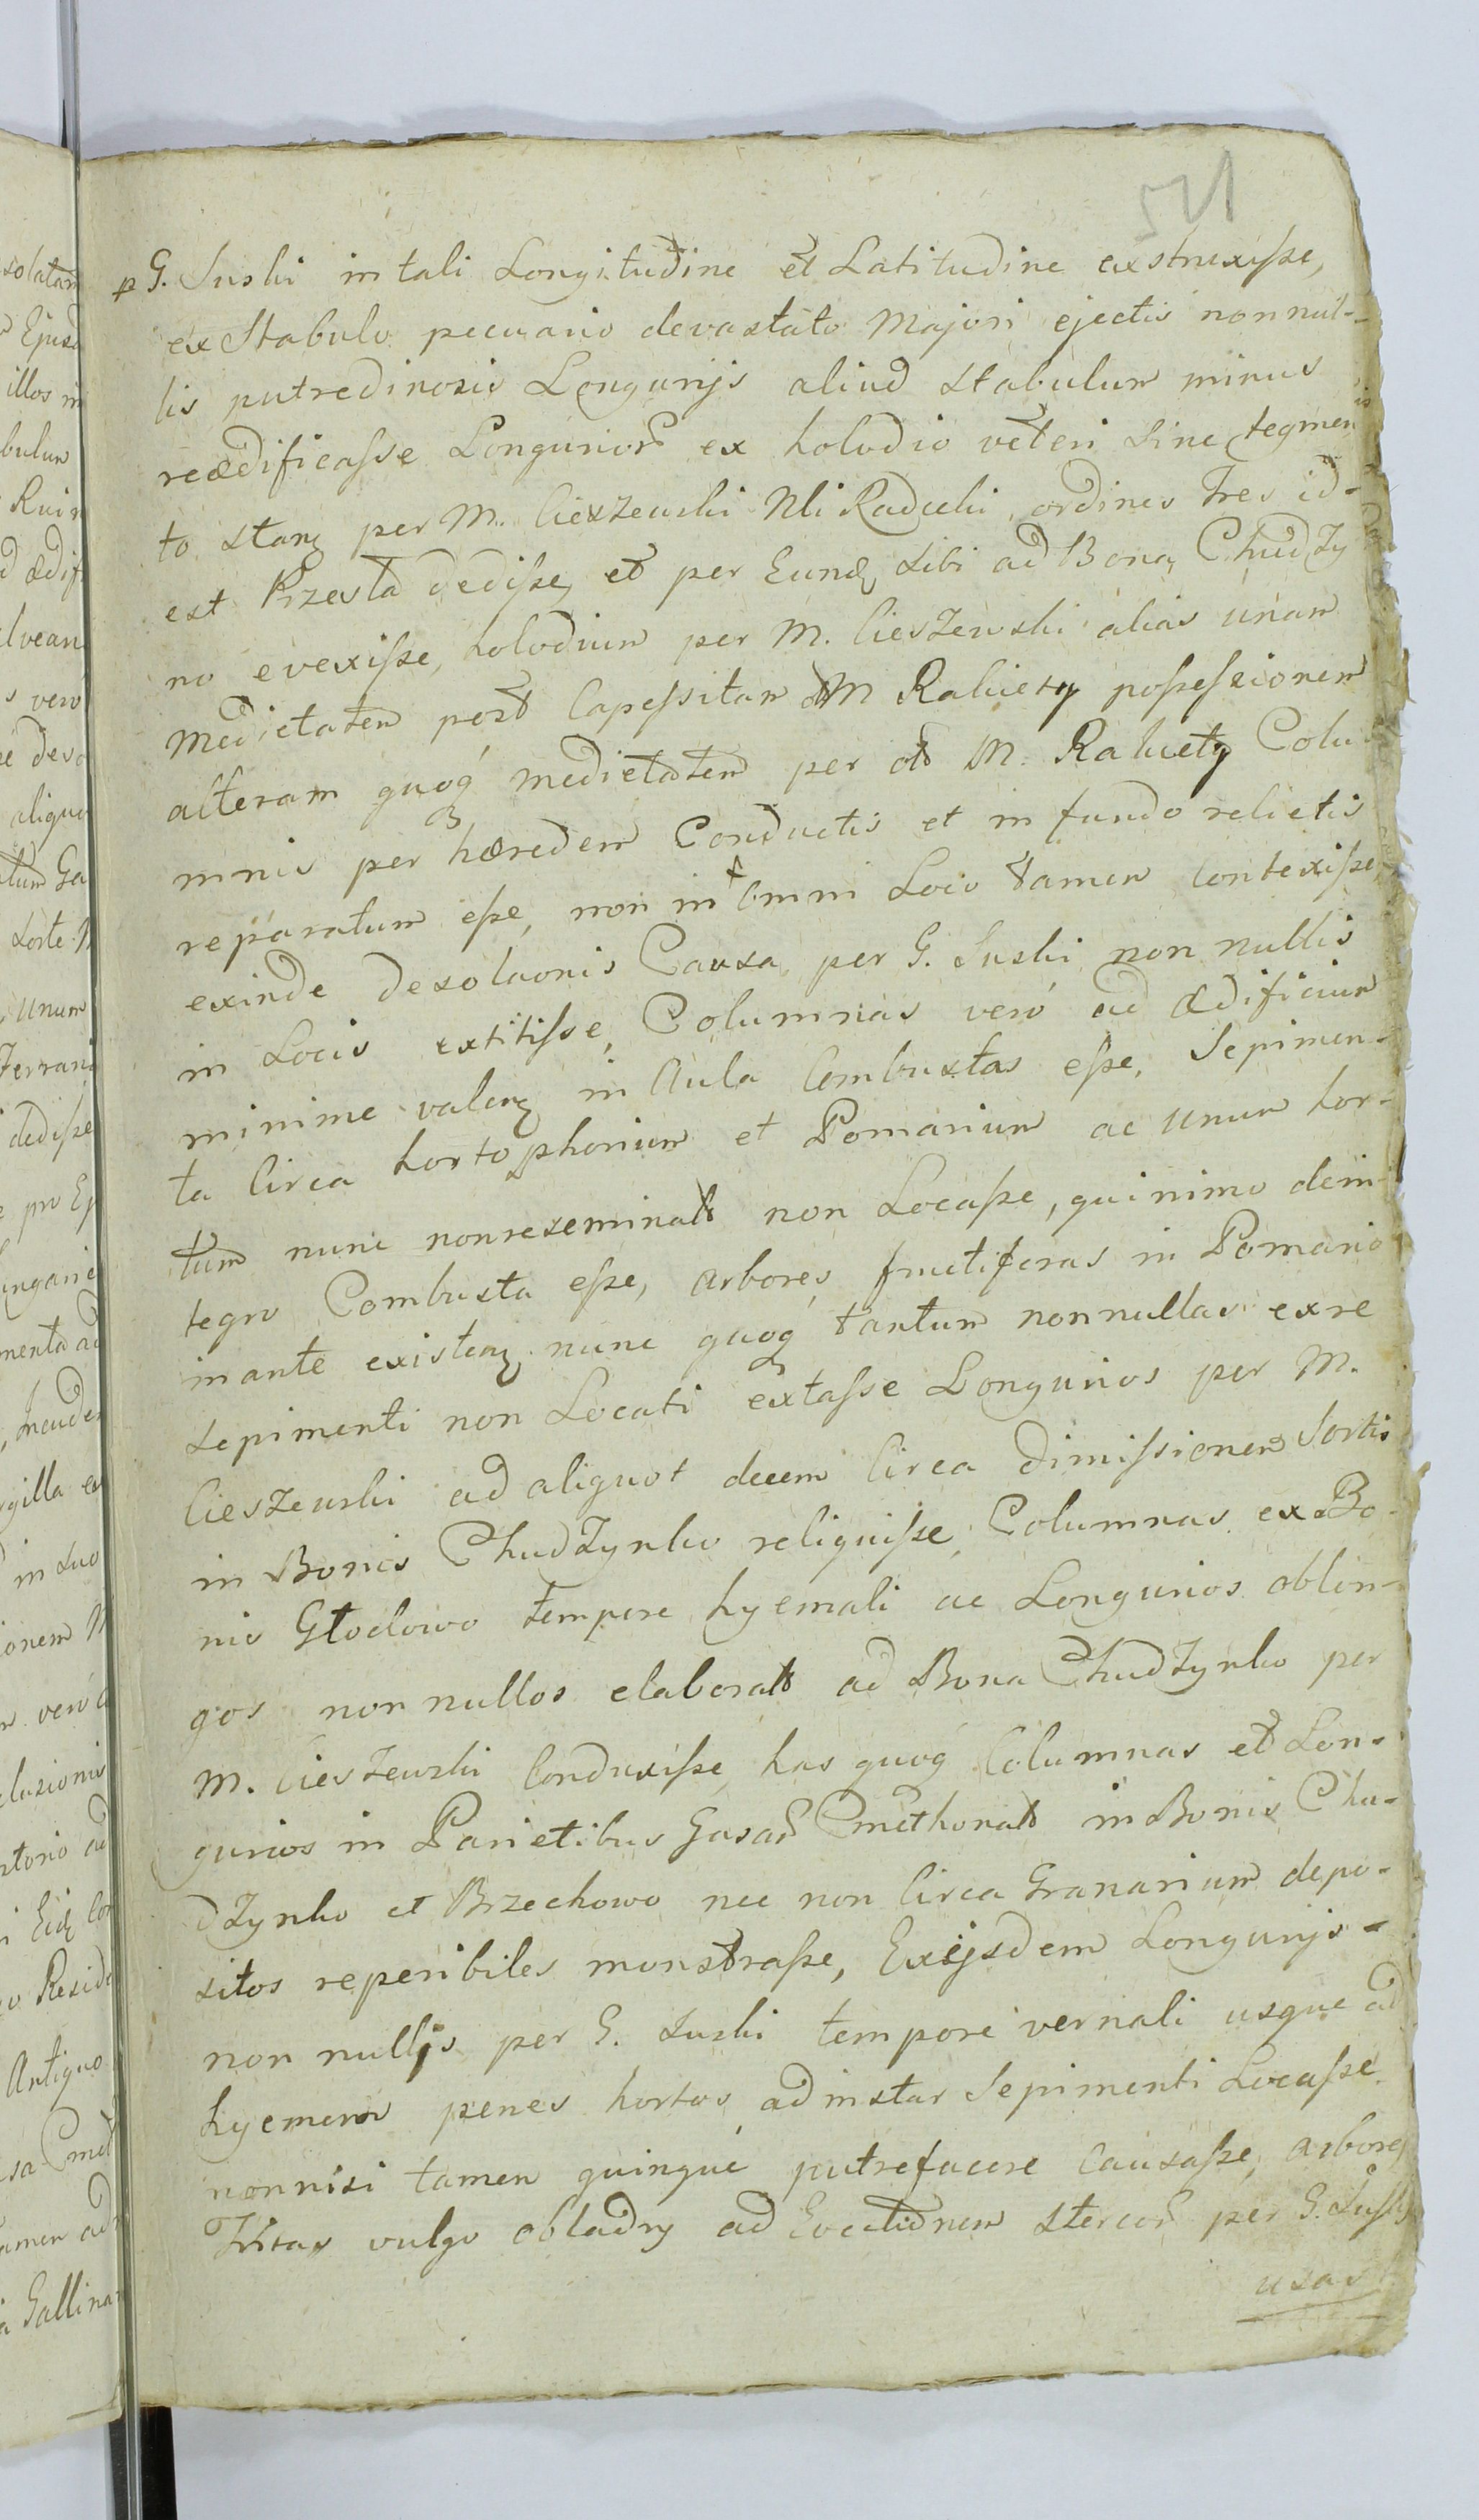 521
p G. Suski in tali Longitudine et Latitudine exstruxisse,
ex Stabulo pecuario devastato Majori ejectis nonnul-
lis putredinosis Longurijs aliud stabulum minus
reædificasse Longurior ex holodio veteri sine tegmen
to stan per M. Cieszewski Nli Radecki, ordines tres id-
est Przesła dedisse, et per Eund sibi ad Bona Chudzy
no evexisse, holodium per M. Cieszewski alias unam
Medietatem post Capessitam M Rakiety possessionem
alteram quoq medietatem per M. Rakiety Colu
mnis per hæredem Conductis et in fundo relictis
reparatum esse, non in omni Loco tamen Contexisse,
exinde desolaonis Causa, per G. Suski non nullis
in Locis extitisse, Columnas vero ad ædificium
minime valen in Aula Combustas esse, Sepimen-
ta Circa horto phorium et Pomarium ac unum hor-
tum nunc nonreseminat non Locasse, quinimo dein-
tegro Combusta esse, arbores fructiferas in Pomario
inante existen nunc quoq tantum nonnullas exre
sepimenti non Locati extasse Longurios per M.
Cieszewski ad aliquot decem Circa dimissionem Sortis
in Bonis Chudzynko reliquisse, Columnas ex Bo-
nis Głodowo tempore hyemali ac Longurios oblon-
gos non nullos elaborat ad Bona Chudzynko per
M. Cieszewski Conduxisse, has quoq Columnas et Lon-
gurios in Parietibus Gasar Cmethonal in Bonis Chu-
dzynko et Brzechowo nec non Circa Granarium depo-
sitos reperibiles monstrasse, Exijsdem Longurijs-
non nullis per G. Suski tempore vernali usque ad
hyemem penes hortos ad instar Sepimenti Locasse
nonnisi tamen quinque putrefacere Causasse, arbores
vulgo obladry ad Evectionem stercor per G. Suski
usas